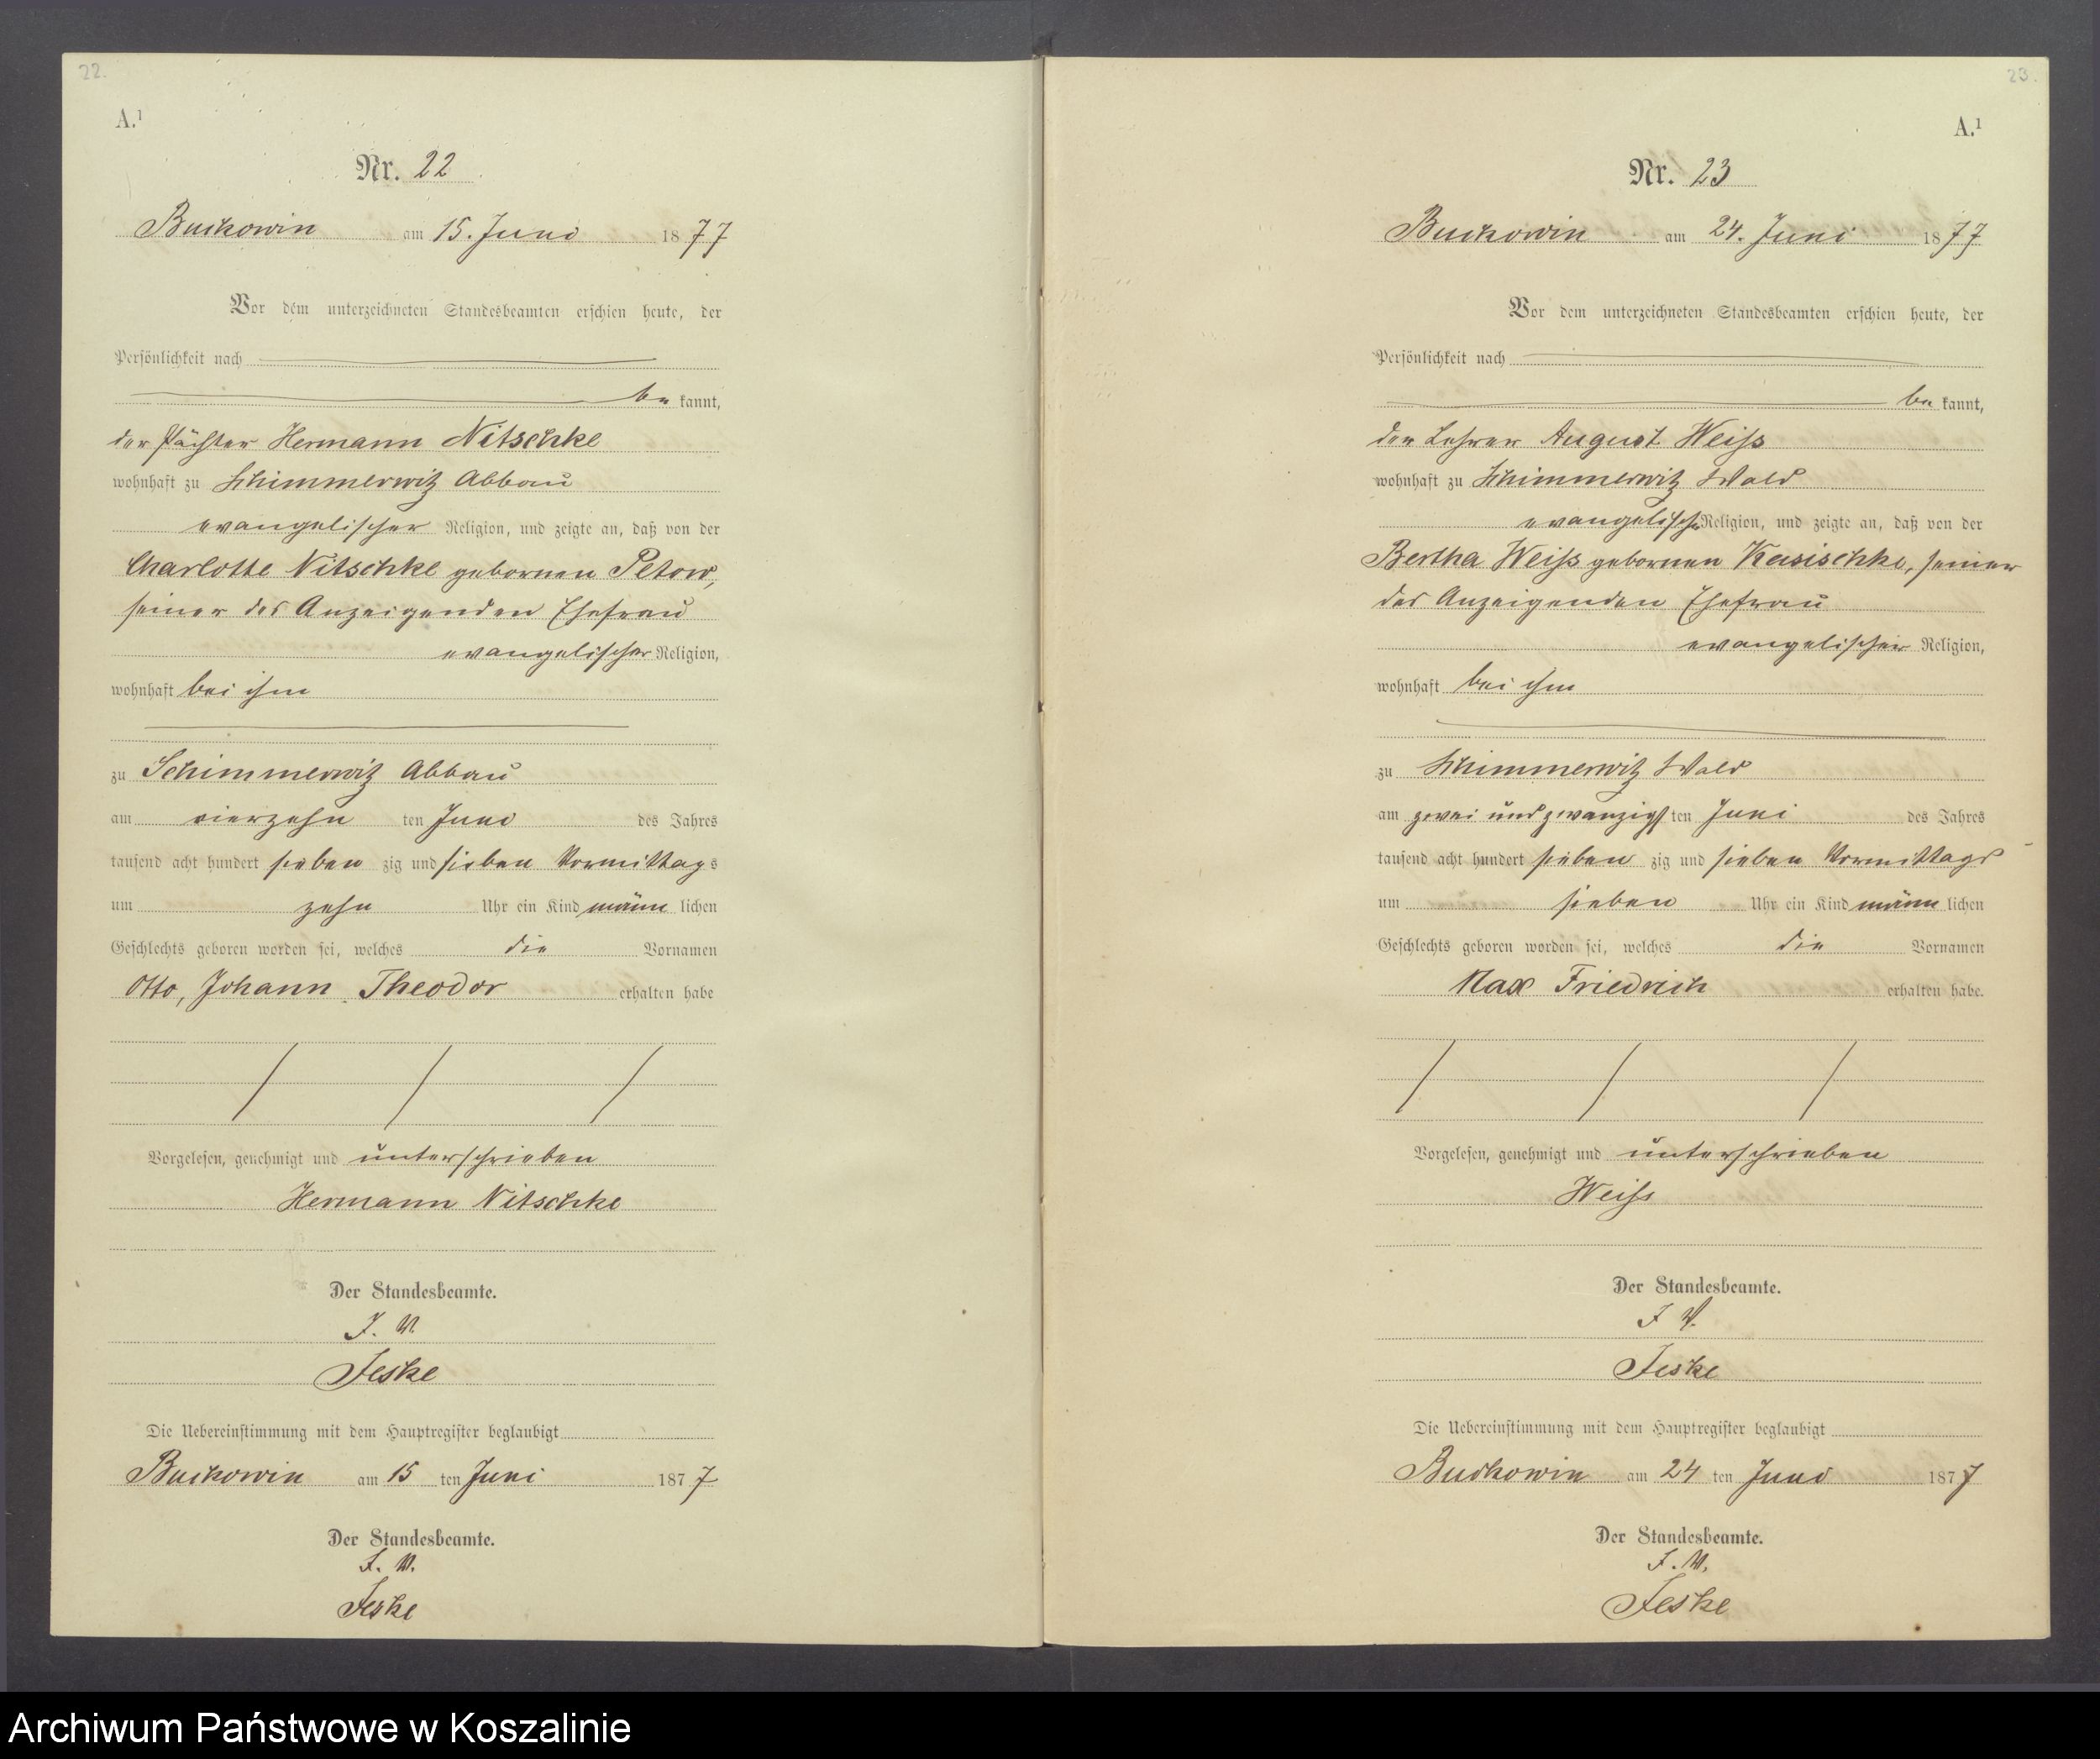 22.
A.¹
Nr. 22
Buckowin am 15. Juni 1877
Vor dem unterzeichneten Standesbeamten erschien heute, der
Persönlichkeit nach
be kannt,
der Pächter Hermann Nitschke
wohnhaft zu Schimmerwitz Abbau
evangelischer Religion, und zeigte an, daß von der
Charlotte Nitschke gebornen Petow,
seiner des Anzeigenden Ehefrau
evangelischer Religion,
wohnhaft bei ihm
zu Schimmerwitz Abbau
am vierzehn ten Juni des Jahres
tausend acht hundert sieben zig und sieben Vormittags
um zehn Uhr ein Kind männ lichen
Geschlechts geboren worden sei, welches die Vornamen
Otto, Johann Theodor erhalten habe
Vorgelesen, genehmigt und unterschrieben
Hermann Nitschke
Der Standesbeamte.
J. V.
Jeske
Die Uebereinstimmung mit dem Hauptregister beglaubigt
Buckowin am 15 ten Juni 1877
Der Standesbeamte.
J. V.
Jeske
23.
A.¹
Nr. 23
Buckowin am 24. Juni 1877
Vor dem unterzeichneten Standesbeamten erschien heute, der
Persönlichkeit nach
be kannt,
der Lehrer August Weiß
wohnhaft zu Schimmerwitz Wald
evangelischer Religion, und zeigte an, daß von der
Bertha Weiß gebornen Kasischke, seiner
des Anzeigenden Ehefrau
evangelischer Religion,
wohnhaft bei ihm
zu Schimmerwitz Wald
am zwei und zwanzigs ten Juni des Jahres
tausend acht hundert sieben zig und sieben Vormittags
um sieben Uhr ein Kind männ lichen
Geschlechts geboren worden sei, welches die Vornamen
Max Friedrich erhalten habe.
Vorgelesen, genehmigt und unterschrieben
Weiß
Der Standesbeamte.
J V.
Jeske
Die Uebereinstimmung mit dem Hauptregister beglaubigt
Buckowin am 24 ten Juni 1877
Der Standesbeamte.
J. V.
Jeske
Archiwum Państwowe w Koszalinie